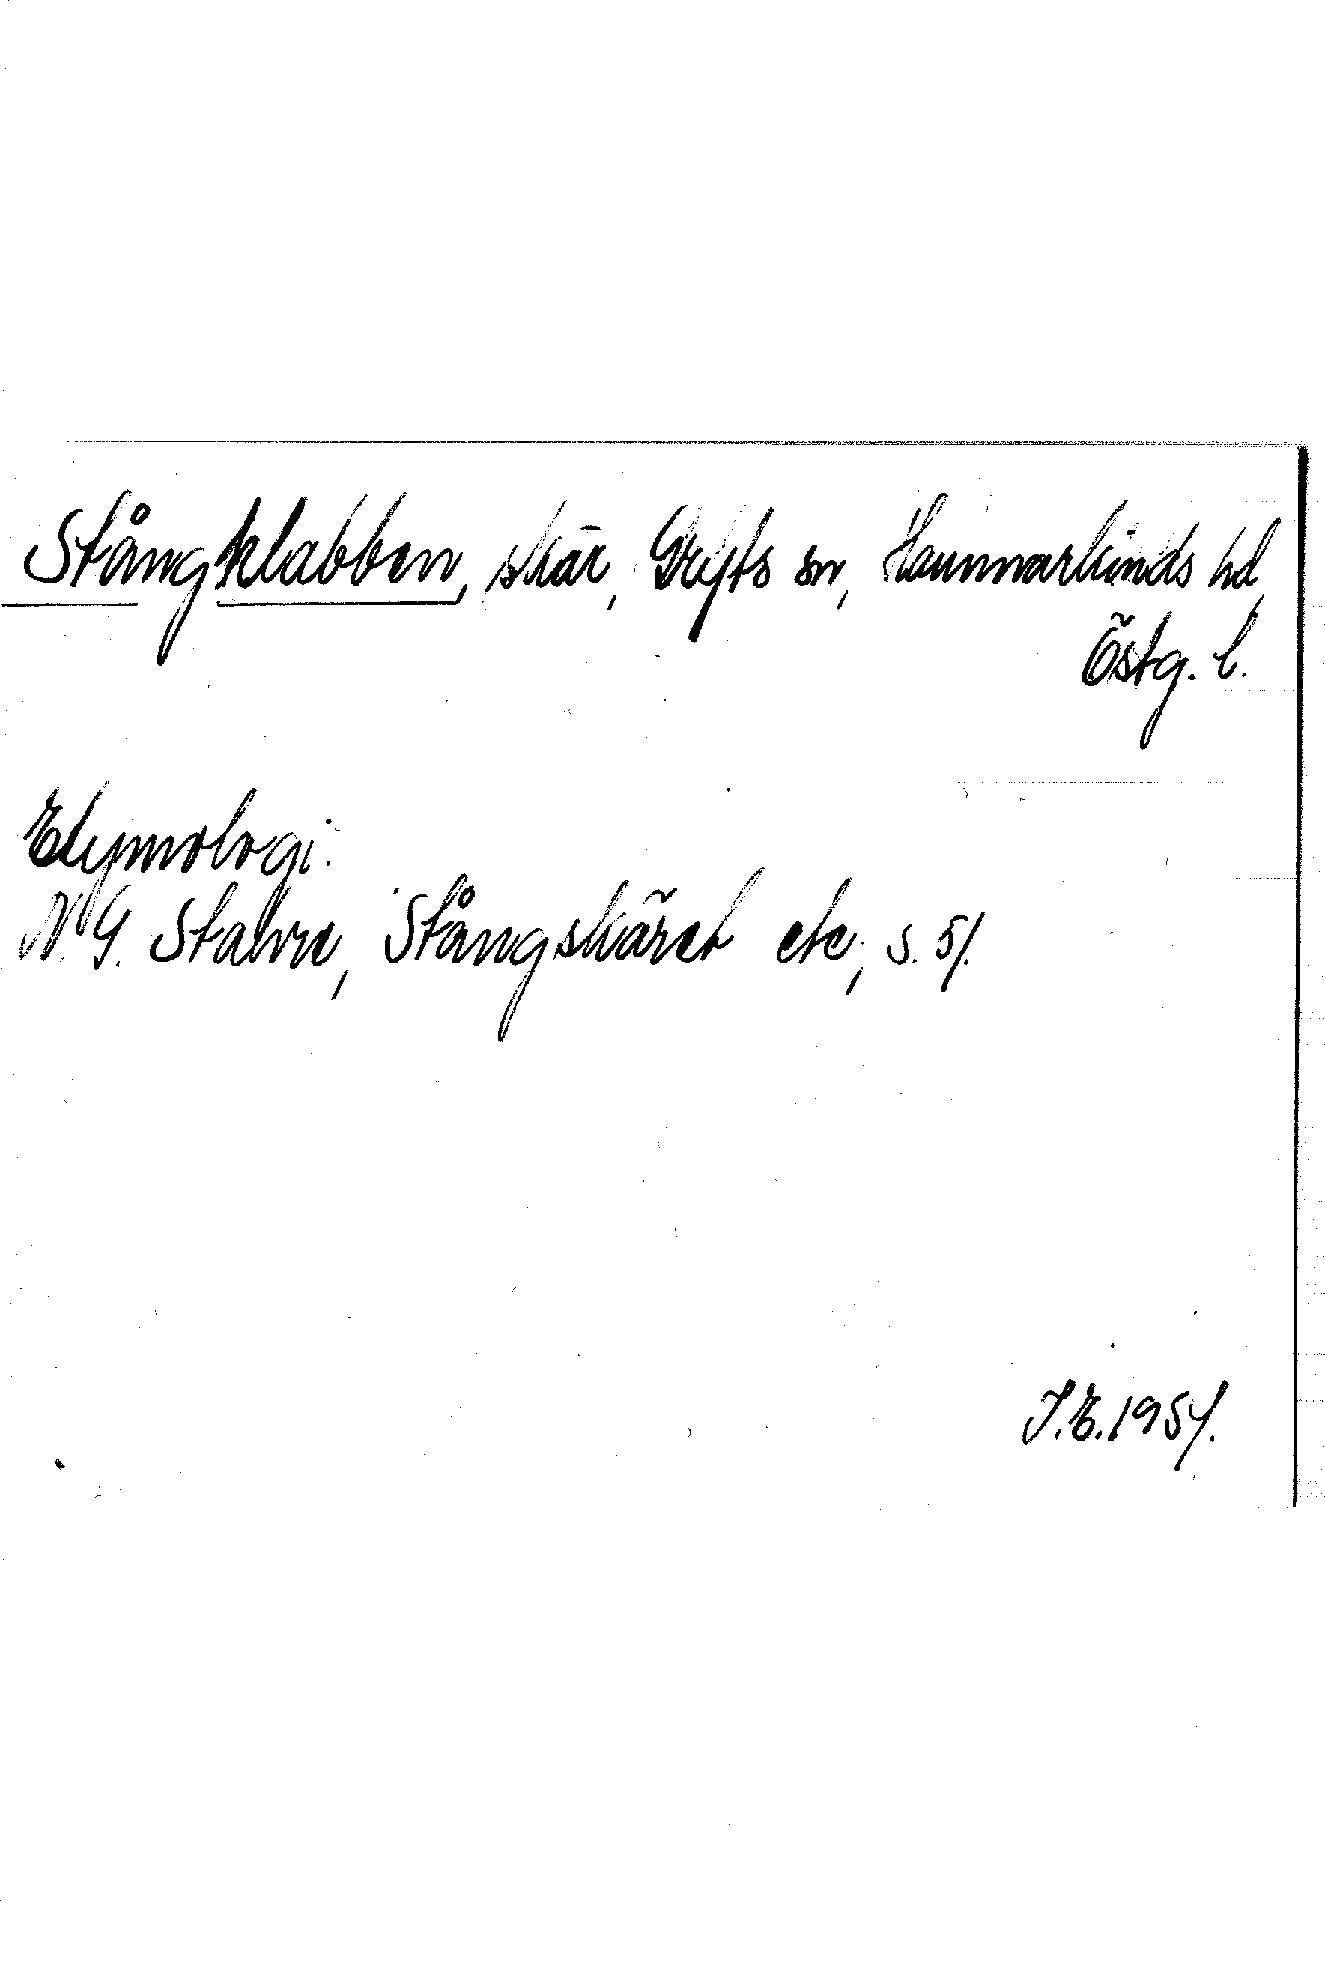 Stångklabben, skär, Gryts sn, Hammarkinds hd,
Östg. l.
Etymologi:
N. G. Stahre, Stångskäret etc, s. 51.
J.E. 1954.